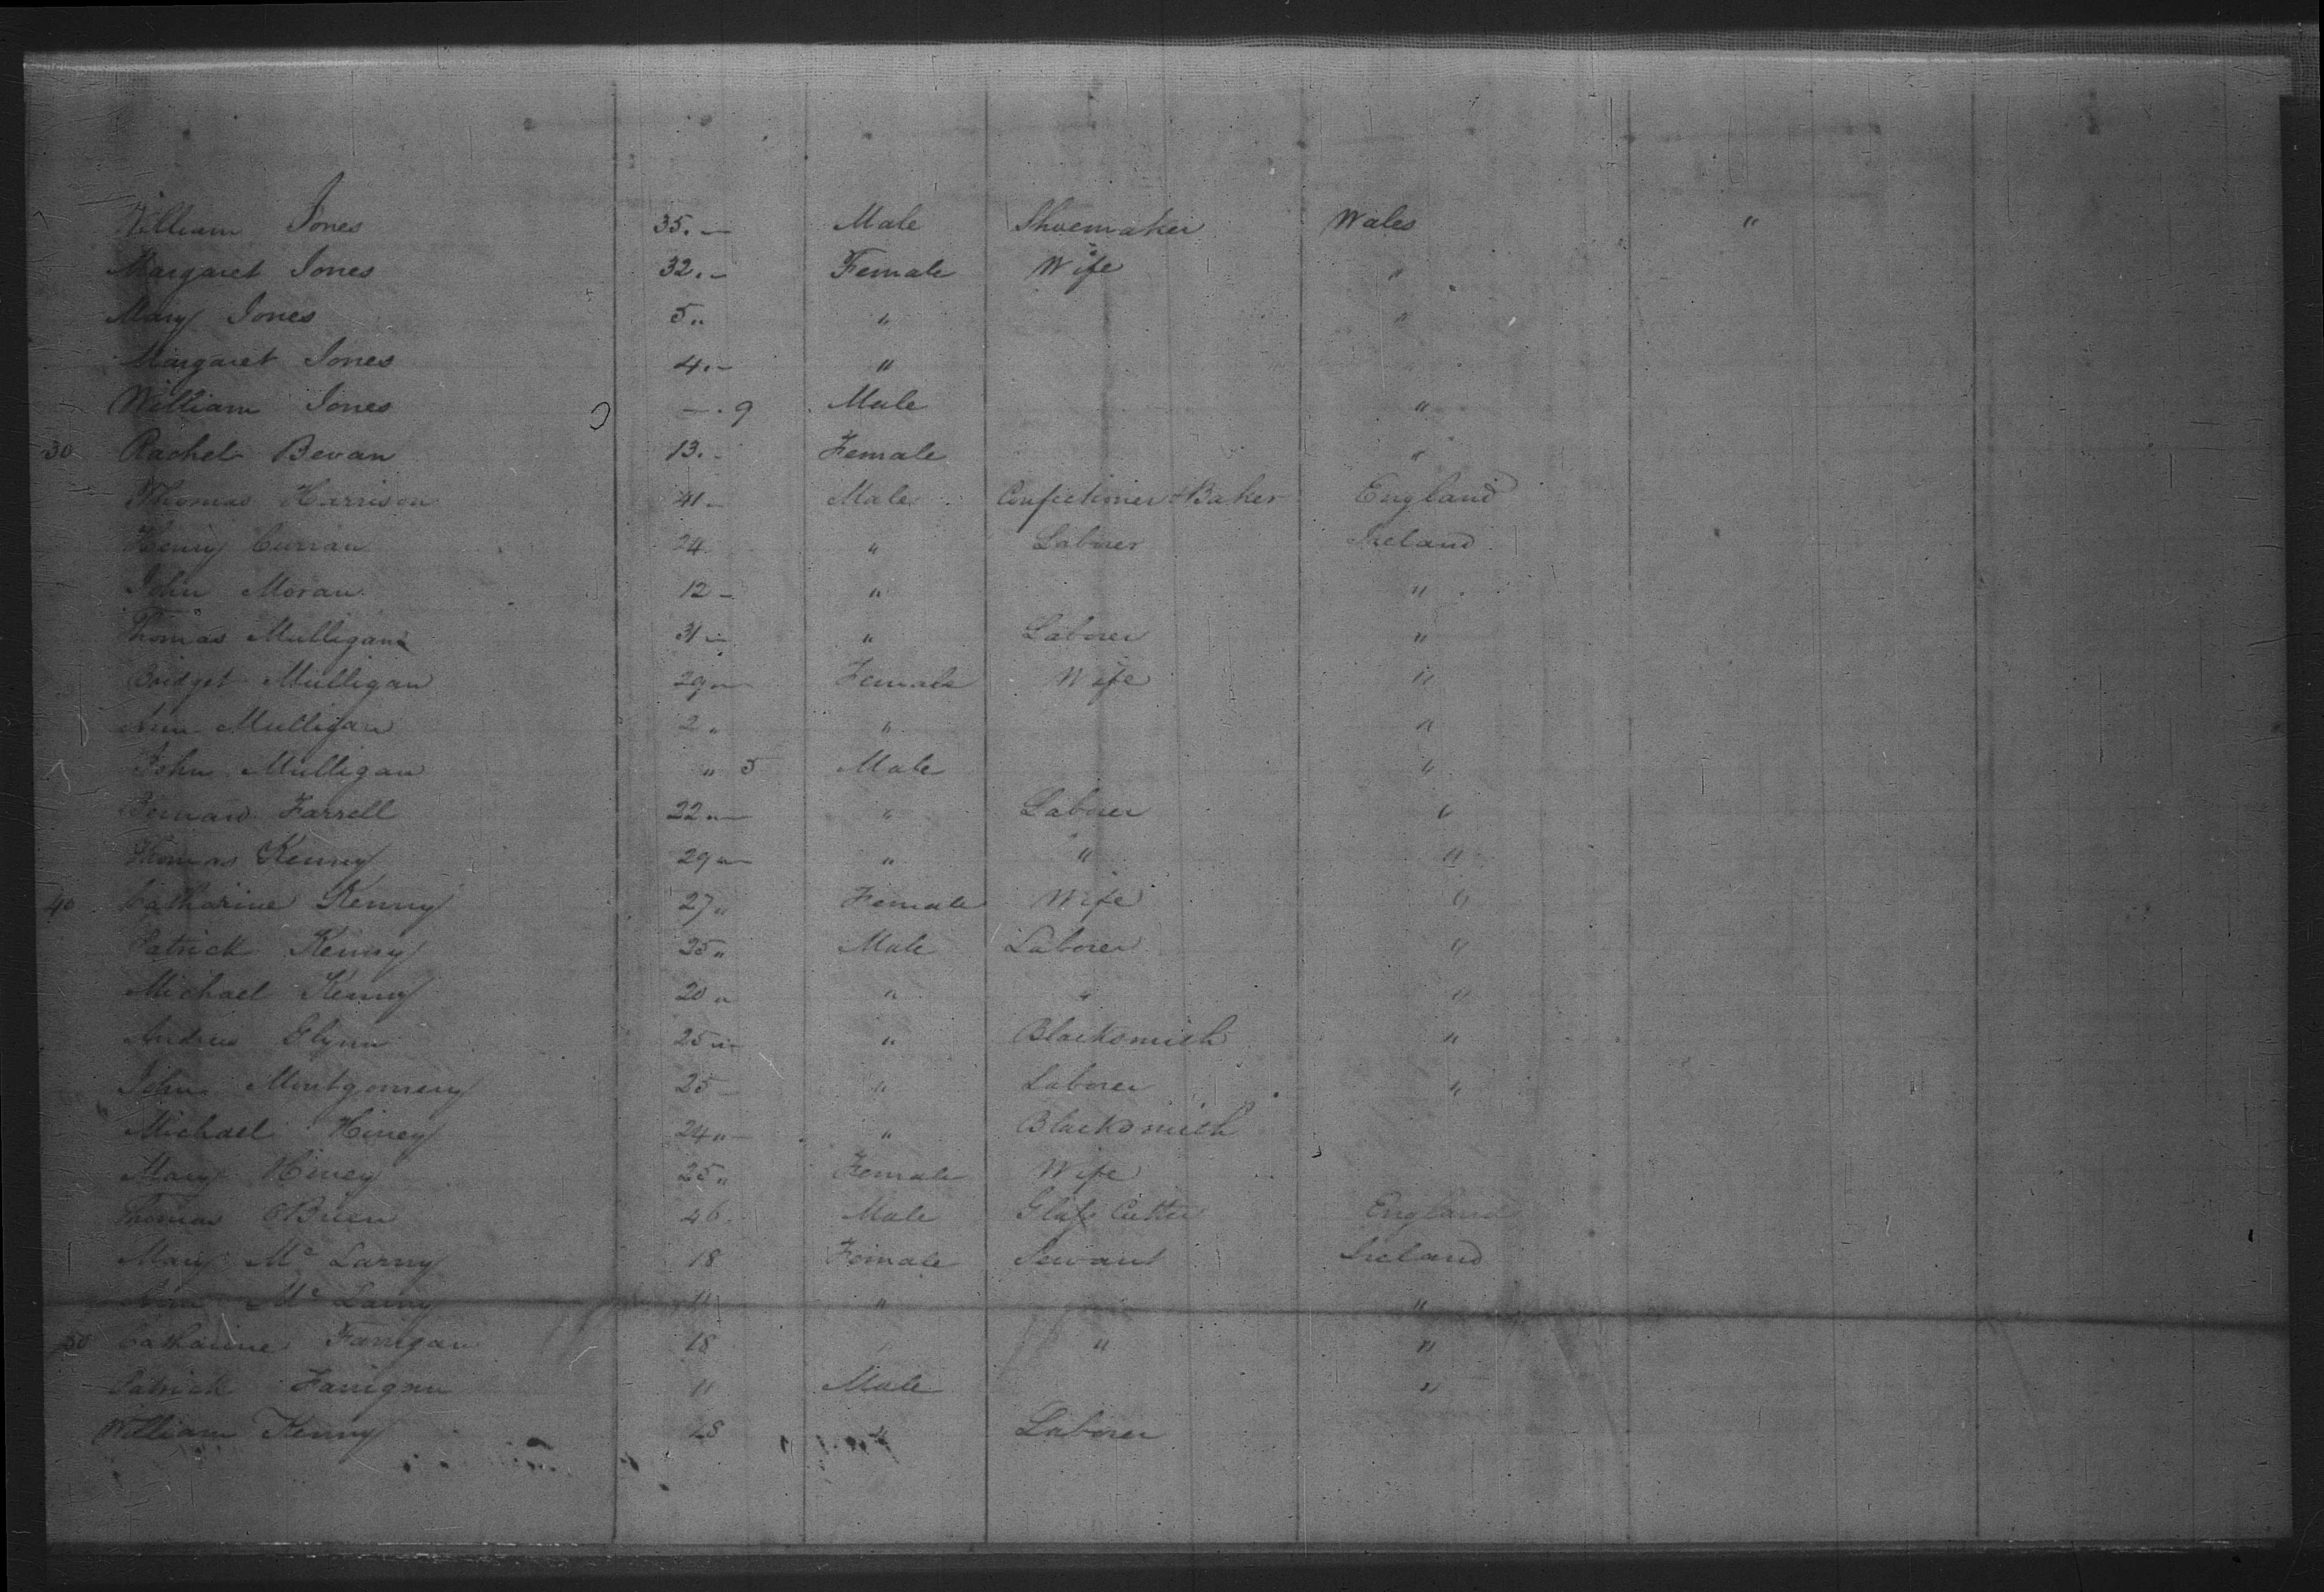 William Jones 35. — Male Shoemaker Wales "
Margaret Jones 32. — Female Wife "
Mary Jones 5 " " "
Margaret Jones 4. — "
William Jones — . 9 Male "
30 Rachel Bevan 13. - Female "
Thomas Harrison 41 - Male Confectioner & Baker England
Henry Curran 24 " Laborer Ireland
John Moran 12 - " "
Thomas Mulligan 31 — " Laborer "
Bridget Mulligan 29 " — Female Wife "
Ann Mulligan 2 " " "
John Mulligan " 5 Male "
Bernard Farrell 22 " — " Laborer "
Thomas Kenny 29 " — " " "
40 Catharine Kenny 27 " Female Wife "
Patrick Kenny 25 " Male Laborer "
Michael Kenny 20 " " " "
Andrew Glynn 25 " — " Blacksmith "
John Montgomery 25 — " Laborer "
Michael Hiney 24 " — " Blacksmith
Mary Hiney 25 " Female Wife
Thomas OBrien 46 - Male Glass Cutter England
Mary Mc Larny 18 Female Servant Ireland
Ann Mc Larny 11 " "
50 Catharine Fanigan 18 " "
Patrick Fanigan 11 Male "
William Kenny 18 " Laborer